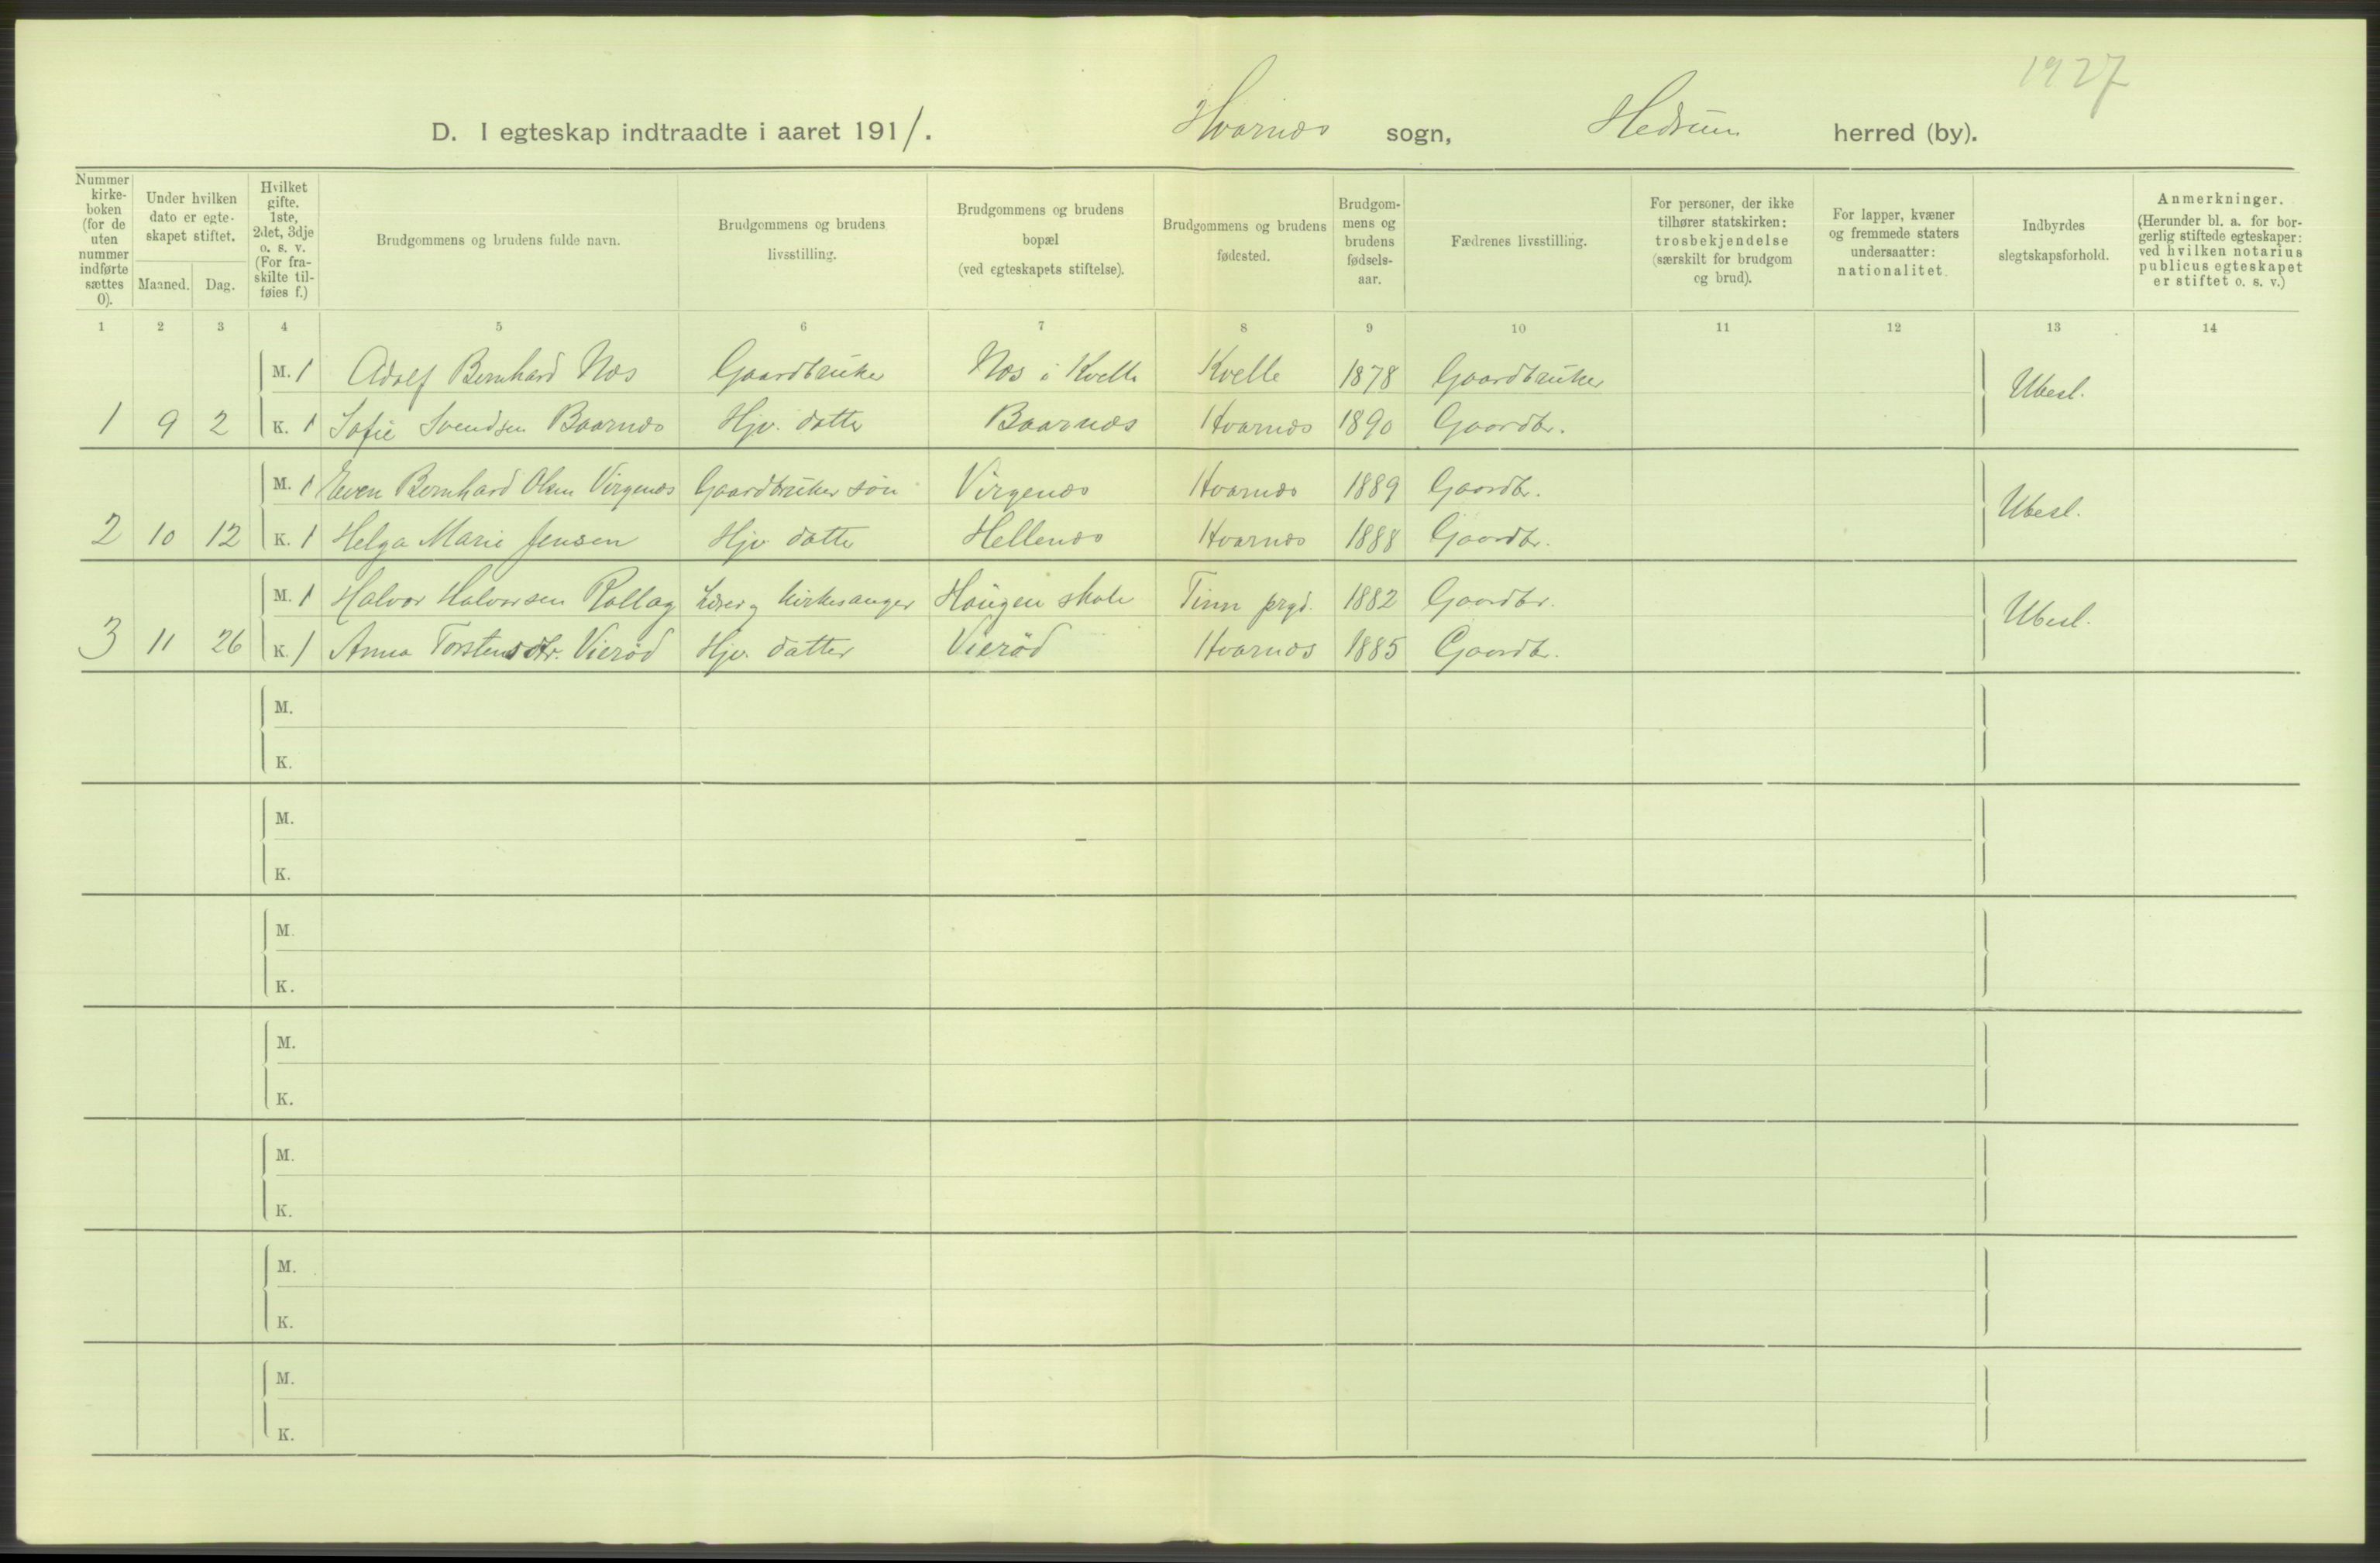 1927
D. I egteskap indtraadte i aaret 1911. Hvarnæs sogn, Hedrum herred (by).
Nummer kirke- boken (for de uten nummer indførte sættes 0).
Under hvilken dato er egte- skapet stiftet.
Maaned. Dag.
Hvilket gifte. 1ste, 2det, 3dje o. s. v. (For fra- skilte til- føies f.)
Brudgommens og brudens fulde navn.
Brudgommens og brudens livsstilling.
Brudgommens og brudens bopæl (ved egteskapets stiftelse).
Brudgommens og brudens fødested.
Brudgom- mens og brudens fødsels- aar.
Fædrenes livsstilling.
For personer, der ikke tilhører statskirken: trosbekjendelse (særskilt for brudgom og brud).
For lapper, kvæner og fremmede staters undersaatter: nationalitet.
Indbyrdes slegtskapsforhold.
Anmerkninger. (Herunder bl. a. for bor- gerlig stiftede egteskaper: ved hvilken notarius publicus egteskapet er stiftet o. s. v.)
1 2 3 4 5 6 7 8 9 10 11 12 13 14
M. 1 Adolf Bernhard Næs Gaardbruker Næs i Kvelle Kvelle 1878 Gaardbruker Ubesl.
1 9 2 K. 1 Sofie Svendsen Baarnæs Hjv. datter Baarnæs Hvarnæs 1890 Gaardbr.
M. 1 Even Bernhard Olsen Virgenæs Gaardbruker søn Virgenæs Hvarnæs 1889 Gaardbr. Ubesl.
2 10 12 K. 1 Helga Marie Jensen Hjv datter Hellenæs Hvarnæs 1888 Gaardbr.
M. 1 Halvor Halvorsen Rollag Lærer og kirkesanger Haugen skole Tinn prgd. 1882 Gaardbr. Ubesl.
3 11 26 K. 1 Anna Torstensdtr. Vierød Hjv. datter Vierød Hvarnæs 1885 Gaardbr.
M.
K.
M.
K.
M.
K.
M.
K.
M.
K.
M.
K.
M.
K.